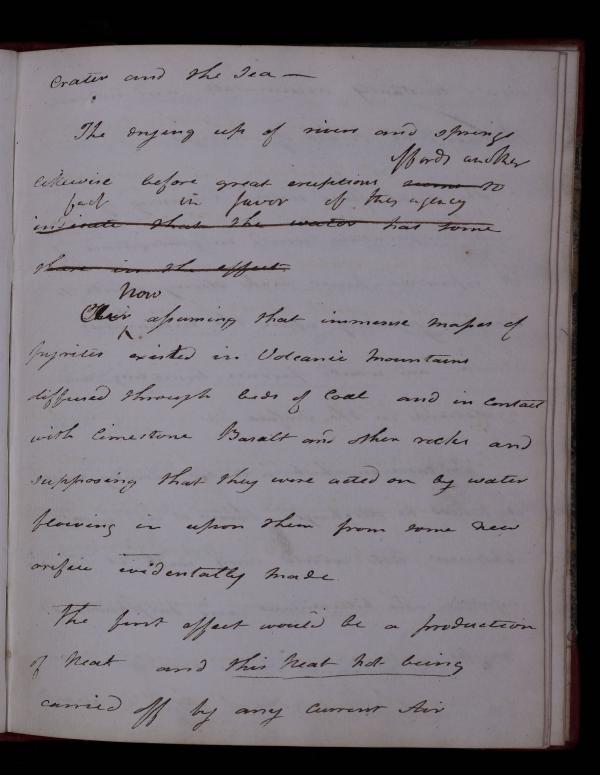 Crater and the Sea —
The drying up of rivers and springs
affords another
likewise before great eruptions seems to
fact in favor of this agency
indicate that the water has some
share in the effect.
Now
assuming that immense masses of
pyrites existed in Volcanic Mountains
diffused through beds of Coal and in contact
with limestone Basalt and other rocks and
supposing that they were acted on by water
flowing in upon them from some new
orifice accidentally made
The first effect would be a production
of heat and this heat not being
carried off by any current Air